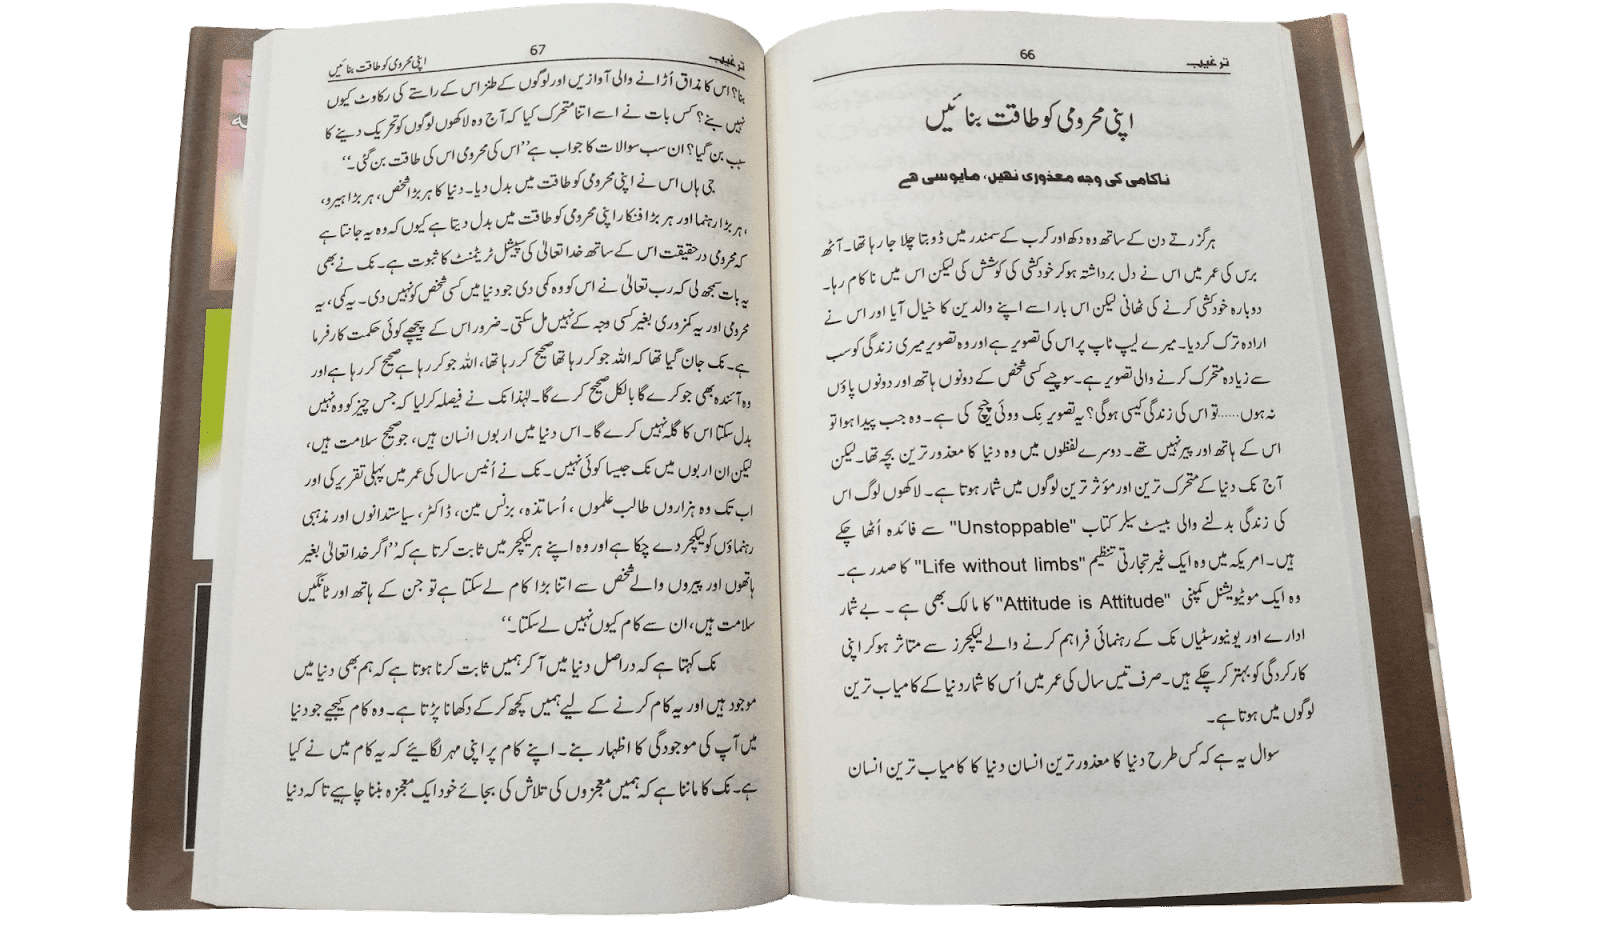 ترغیب
66
اپنی محرومی کو طاقت بنائیں
ناکامی کی وجہ معذوری نھیں، مایوسی ھے
ہر گزرتے دن کے ساتھ وہ دکھ اور کرب کے سمندر میں ڈوبتا چلا جا رہا تھا۔ آٹھ
برس کی عمر میں اس نے دل برداشتہ ہو کر خودکشی کی کوشش کی لیکن اس میں ناکام رہا۔
دوبارہ خودکشی کرنے کی ٹھانی لیکن اس بار اسے اپنے والدین کا خیال آیا اور اس نے
ارادہ ترک کر دیا۔ میرے لیپ ٹاپ پر اس کی تصویر ہے اور وہ تصویر میری زندگی کو سب
سے زیادہ متحرک کرنے والی تصویر ہے۔ سوچیے کسی شخص کے دونوں ہاتھ اور دونوں پاؤں
نہ ہوں...... تو اس کی زندگی کیسی ہوگی؟ یہ تصویر نِک ووئی چِچ کی ہے۔ وہ جب پیدا ہوا تو
اس کے ہاتھ اور پیر نہیں تھے۔ دوسرے لفظوں میں وہ دنیا کا معذور ترین بچہ تھا۔ لیکن
آج نک دنیا کے متحرک ترین اور مؤثر ترین لوگوں میں شمار ہوتا ہے۔ لاکھوں لوگ اس
کی زندگی بدلنے والی بیسٹ سیلر کتاب "Unstoppable" سے فائدہ اُٹھا چکے
ہیں۔ امریکہ میں وہ ایک غیر تجارتی تنظیم "Life without limbs" کا صدر ہے۔
وہ ایک موٹیویشنل کمپنی "Attitude is Attitude" کا مالک بھی ہے ۔ بے شمار
ادارے اور یونیورسٹیاں نک کے رہنمائی فراہم کرنے والے لیکچرز سے متاثر ہو کر اپنی
کارکردگی کو بہتر کر چکے ہیں۔ صرف تیس سال کی عمر میں اُس کا شمار دنیا کے کامیاب ترین
لوگوں میں ہوتا ہے۔
سوال یہ ہے کہ کس طرح دنیا کا معذور ترین انسان دنیا کا کامیاب ترین انسان
ترغیب
67
اپنی محرومی کو طاقت بنائیں
بنا؟ اس کا مذاق اُڑانے والی آوازیں اور لوگوں کے طنز اس کے راستے کی رکاوٹ کیوں
نہیں بنے؟ کس بات نے اسے اتنا متحرک کیا کہ آج وہ لاکھوں لوگوں کو تحریک دینے کا
سبب بن گیا؟ ان سب سوالات کا جواب ہے ’’اس کی محرومی اس کی طاقت بن گئی۔‘‘
جی ہاں اس نے اپنی محرومی کو طاقت میں بدل دیا۔ دنیا کا ہر بڑا شخص، ہر بڑا ہیرو،
ہر بڑا رہنما اور ہر بڑا فنکار اپنی محرومی کو طاقت میں بدل دیتا ہے کیوں کہ وہ یہ جانتا ہے
کہ محرومی درحقیقت اس کے ساتھ خدا تعالیٰ کی سپیشل ٹریٹمنٹ کا ثبوت ہے۔ نک نے بھی
یہ بات سمجھ لی کہ رب تعالیٰ نے اس کو وہ کمی دی جو دنیا میں کسی شخص کو نہیں دی۔ یہ کمی، یہ
محرومی اور یہ کمزوری بغیر کسی وجہ کے نہیں مل سکتی۔ ضرور اس کے پیچھے کوئی حکمت کارفرما
ہے۔ نک جان گیا تھا کہ اللہ جو کر رہا تھا صحیح کر رہا تھا، اللہ جو کر رہا ہے صحیح کر رہا ہے اور
وہ آئندہ بھی جو کرے گا بالکل صحیح کرے گا۔ لہٰذا نک نے فیصلہ کر لیا کہ جس چیز کو وہ نہیں
بدل سکتا اس کا گلہ نہیں کرے گا۔ اس دنیا میں اربوں انسان ہیں، جو صحیح سلامت ہیں،
لیکن ان اربوں میں نک جیسا کوئی نہیں۔ نک نے اُنیس سال کی عمر میں پہلی تقریر کی اور
اب تک وہ ہزاروں طالب علموں ، اُساتذہ، بزنس مین، ڈاکٹر، سیاستدانوں اور مذہبی
رہنماؤں کو لیکچر دے چکا ہے اور وہ اپنے ہر لیکچر میں ثابت کرتا ہے کہ ’’اگر خدا تعالیٰ بغیر
ہاتھوں اور پیروں والے شخص سے اتنا بڑا کام لے سکتا ہے تو جن کے ہاتھ اور ٹانگیں
سلامت ہیں، ان سے کام کیوں نہیں لے سکتا۔‘‘
نک کہتا ہے کہ دراصل دنیا میں آ کر ہمیں ثابت کرنا ہوتا ہے کہ ہم بھی دنیا میں
موجود ہیں اور یہ کام کرنے کے لیے ہمیں کچھ کر کے دکھانا پڑتا ہے۔ وہ کام کیجیے جو دنیا
میں آپ کی موجودگی کا اظہار بنے۔ اپنے کام پر اپنی مہر لگائیے کہ یہ کام میں نے کیا
ہے۔ نک کا ماننا ہے کہ ہمیں معجزوں کی تلاش کی بجائے خود ایک معجزہ بننا چاہیے تاکہ دنیا